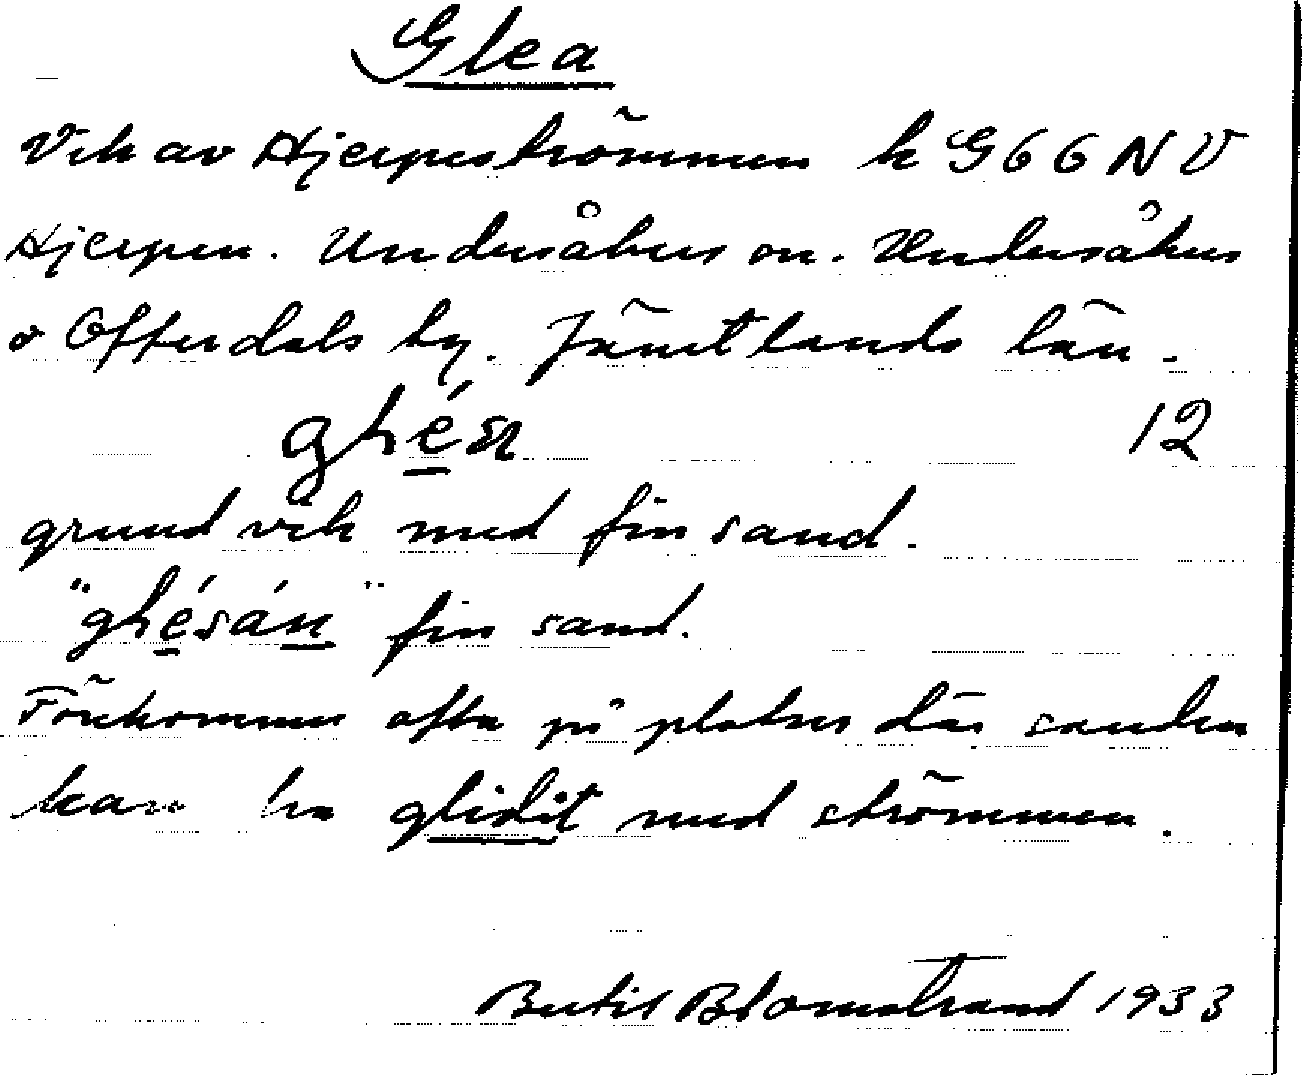 Glea
Vik av Hjerpeströmmen k G66NV
Hjerpen. Undersåkers sn. Undersåkers
o Offerdals tg. Jämtlands län.
12
grund vik med fin sand.
fin sand.
Förekommer ofta på platser där sanden
kan ha glidit med strömmen.
Bertil Blomstrand 1933